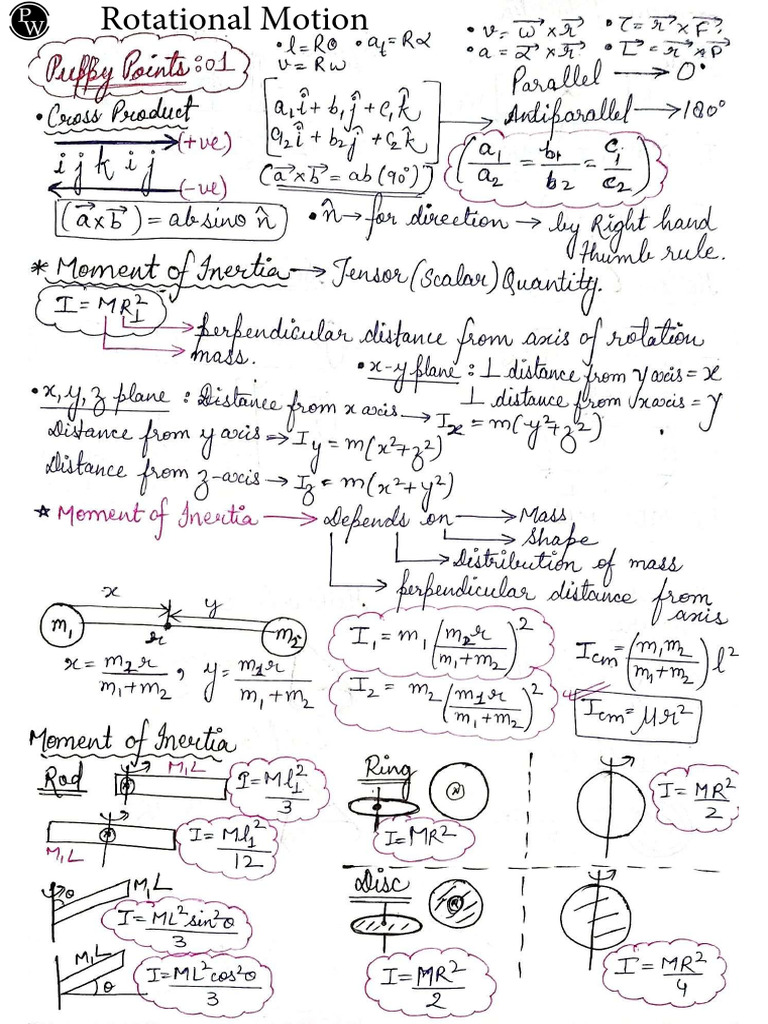 PW
Rotational Motion
Puppy Points:01
• l = Rθ • a_t = Rα
v = Rω
• v = ω⃗ × r⃗ • τ = r⃗ × F⃗
• a = α⃗ × r⃗ • L⃗ = r⃗ × P⃗
• Cross Product
(+ve)
i j k i j
(-ve)
[a₁î + b₁ĵ + c₁k̂
a₂î + b₂ĵ + c₂k̂] →
(a⃗ × b⃗ = ab (90°))
Parallel → 0°
Antiparallel → 180°
(a₁/a₂ = b₁/b₂ = c₁/c₂)
(a⃗ × b⃗) = ab sinθ n̂
• n̂ → for direction → by Right hand
thumb rule.
* Moment of Inertia → Tensor (Scalar) Quantity.
I = MR⊥²
→ perpendicular distance from axis of rotation
→ mass.
• x-y plane : ⊥ distance from y axis = x
⊥ distance from x axis = y
• x, y, z plane : Distance from x axis → Ix = m(y²+z²)
Distance from y axis → Iy = m(x²+z²)
Distance from z-axis → Iz = m(x²+y²)
★ Moment of Inertia → Depends on → Mass
→ Shape
→ Distribution of mass
→ perpendicular distance from
axis
x y
m₁ r m₂
x = m₂r/(m₁+m₂) , y = m₁r/(m₁+m₂)
I₁ = m₁ (m₂r/(m₁+m₂))²
I₂ = m₂ (m₁r/(m₁+m₂))²
Icm = (m₁m₂/(m₁+m₂)) l²
Icm = μr²
Moment of Inertia
Rod
M,L
I = Ml⊥²/3
M,L
I = Ml⊥²/12
θ M,L
I = ML²sin²θ/3
M,L θ
I = ML²cos²θ/3
Ring
I = MR²
I = MR²/2
Disc
I = MR²/2
I = MR²/4